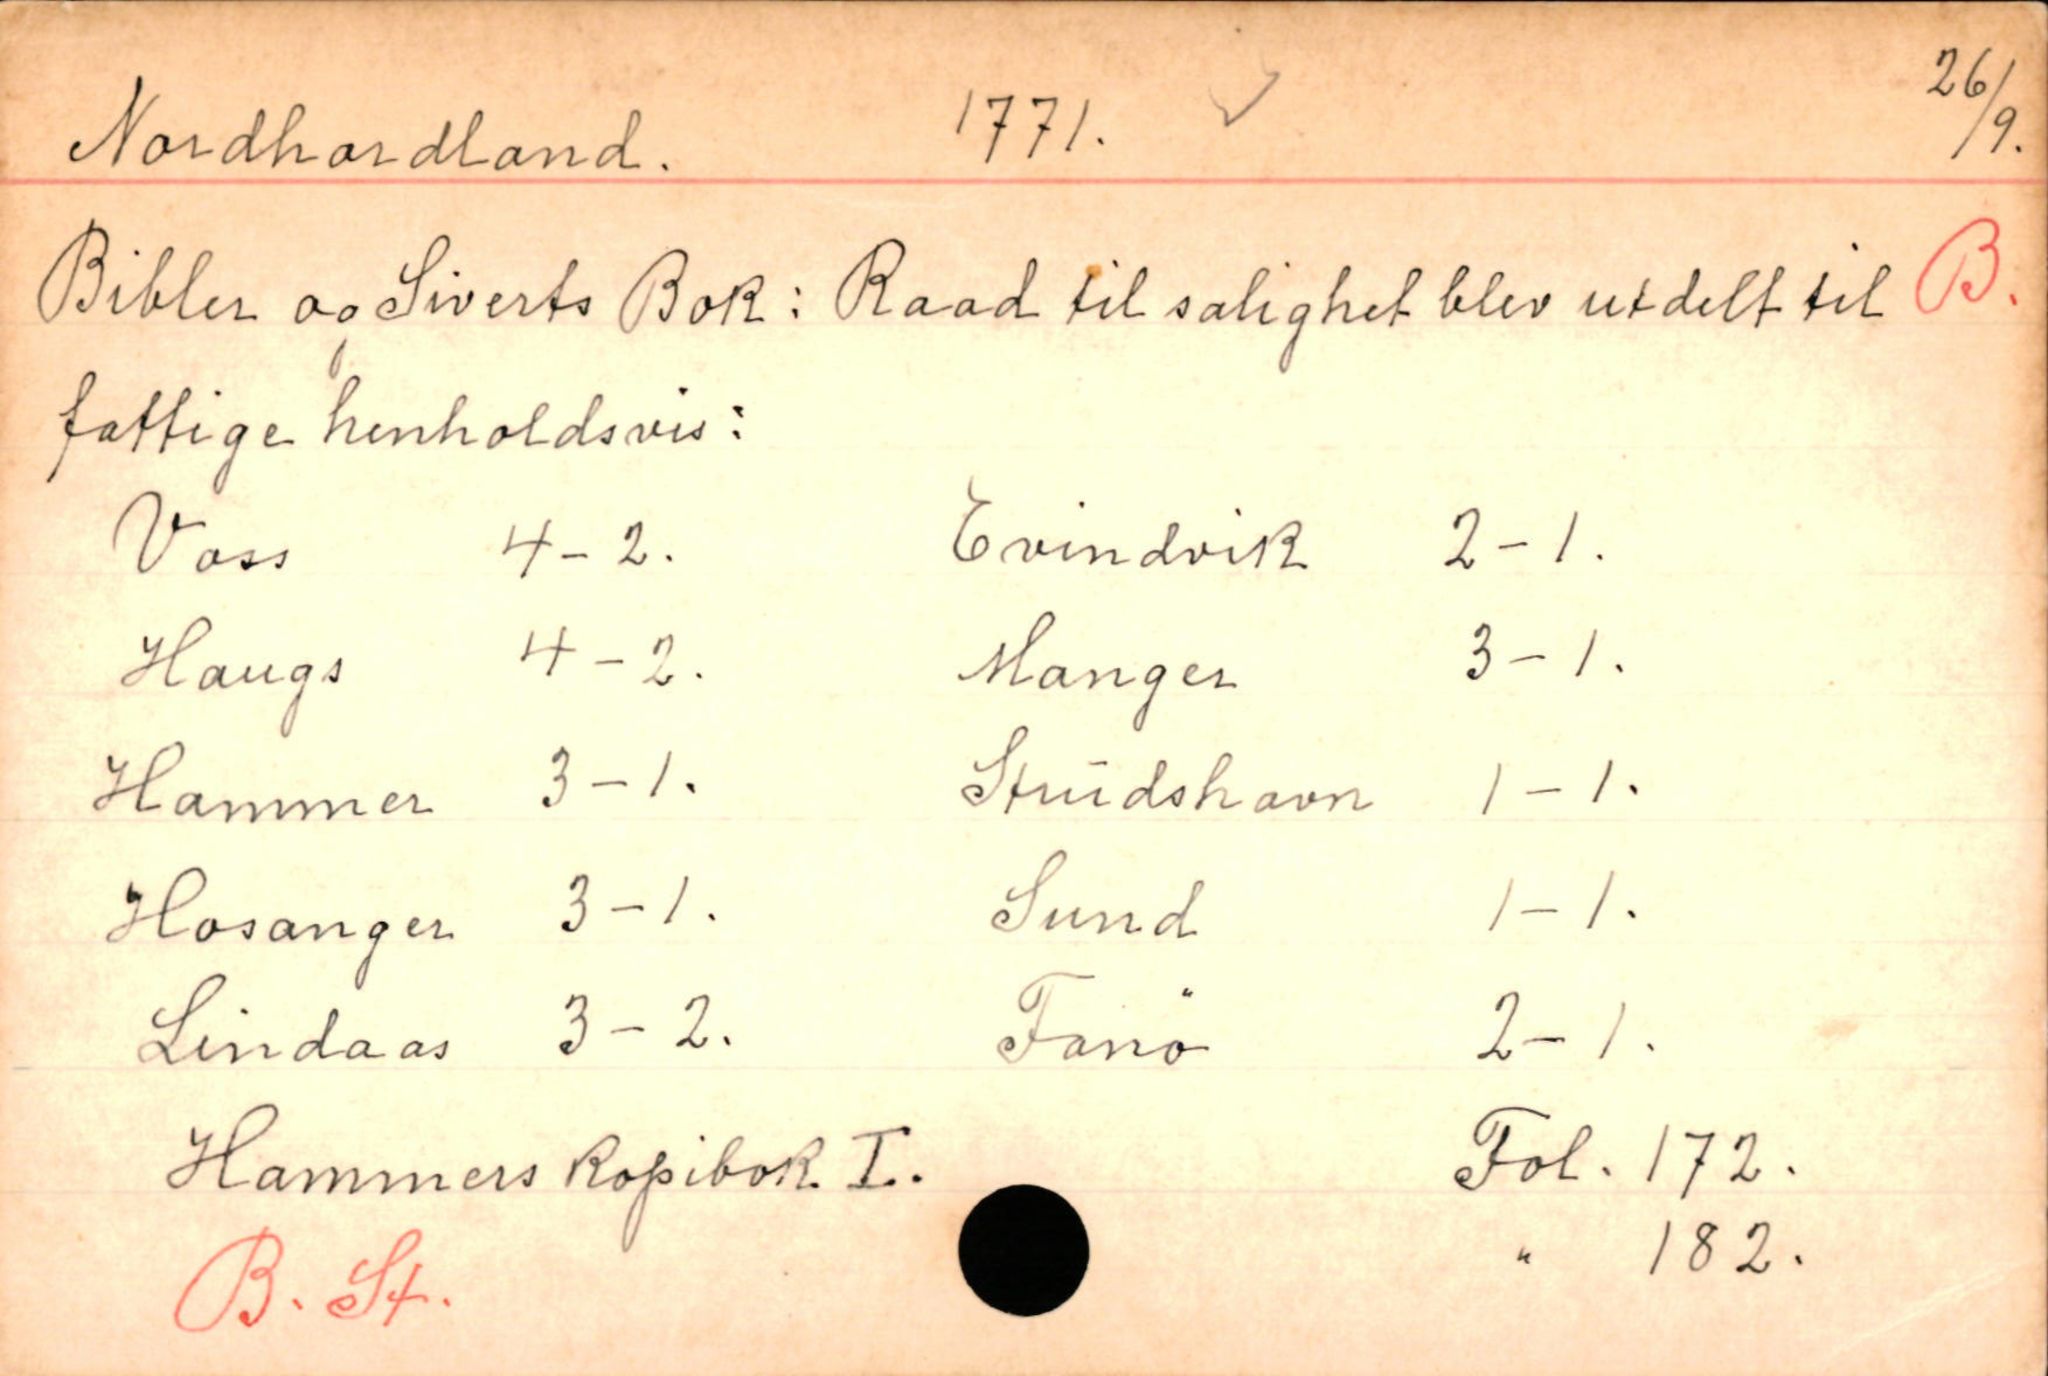 Nordhordland. 1771. 26/9.
Bibler og Siverts Bok: Raad til salighet blev utdelt til B.
fattige henholdsvis:
Voss 4-2. Evindvik 2-1.
Haugs 4-2. Manger 3-1.
Hammer 3-1. Strudshavn 1-1.
Hosanger 3-1. Sund 1-1.
Lindaas 3-2. Fanö 2-1.
Hammers kopibok I. Fol. 172.
" 182.
B. St.